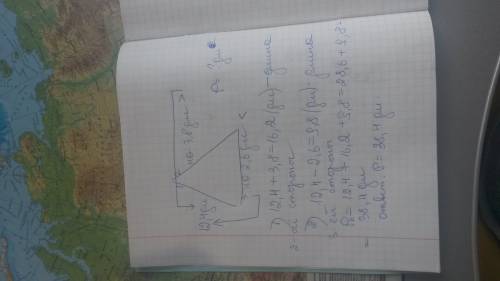 P - ? дм
на 3,8 дм >
12,4 дм
на 2,6 дм <
1) 12,4 + 3,8 = 16,2 (дм) - длина
2-ой стороны
2) 12,4 - 2,6 = 9,8 (дм) - длина
3 ей стороны
P = 12,4 + 16,2 + 9,8 = 28,6 + 9,8
= 38,4 дм
ответ: P = 38,4 дм